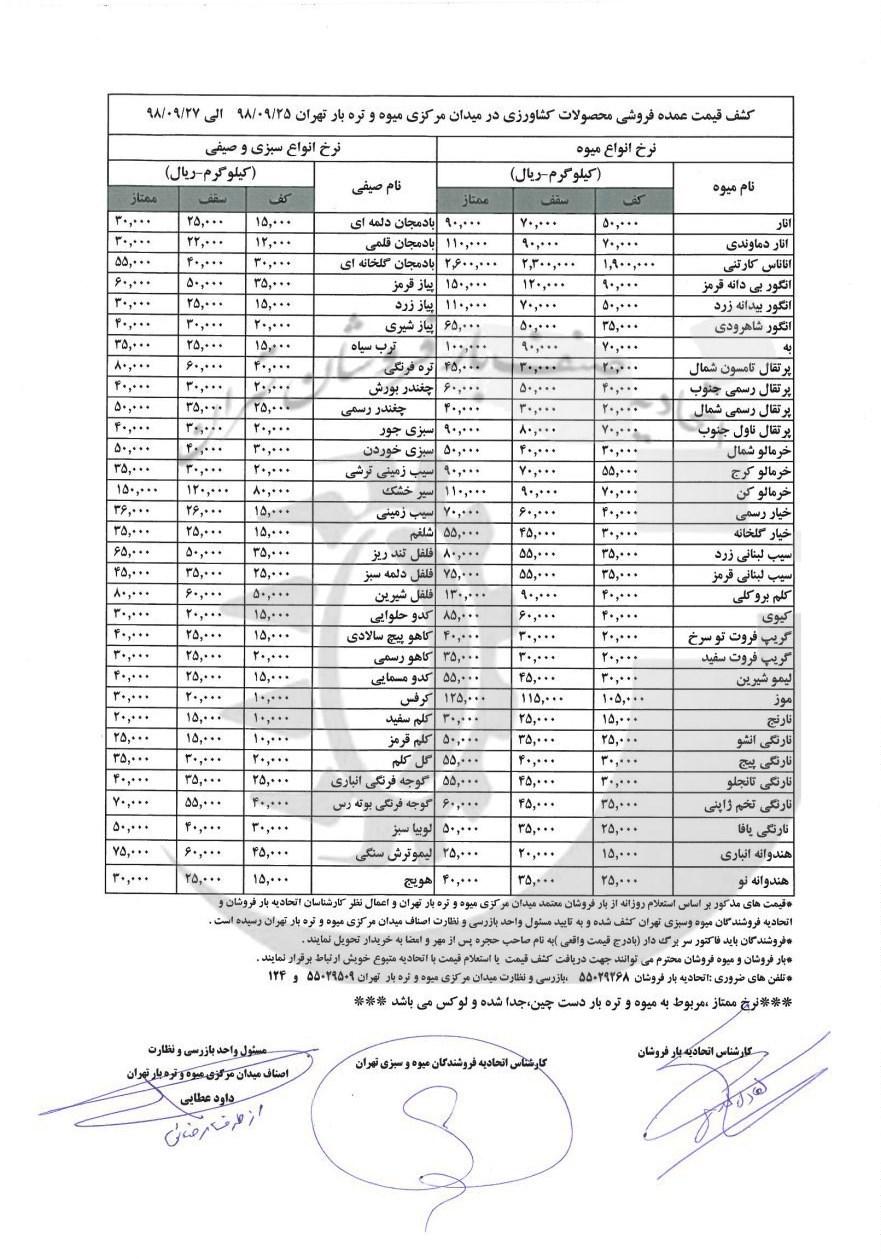 کشف قیمت عمده فروشی محصولات کشاورزی در میدان مرکزی میوه و تره بار تهران ۹۸/۰۹/۲۵ الی ۹۸/۰۹/۲۷
نرخ انواع میوه نرخ انواع سبزی و صیفی
نام میوه (کیلوگرم-ریال) نام صیفی (کیلوگرم-ریال)
کف سقف ممتاز کف سقف ممتاز
انار ۵۰,۰۰۰ ۷۰,۰۰۰ ۹۰,۰۰۰ بادمجان دلمه ای ۱۵,۰۰۰ ۲۵,۰۰۰ ۳۰,۰۰۰
انار دماوندی ۷۰,۰۰۰ ۹۰,۰۰۰ ۱۱۰,۰۰۰ بادمجان قلمی ۱۲,۰۰۰ ۲۲,۰۰۰ ۳۰,۰۰۰
اناناس کارتنی ۱,۹۰۰,۰۰۰ ۲,۳۰۰,۰۰۰ ۲,۶۰۰,۰۰۰ بادمجان گلخانه ای ۳۰,۰۰۰ ۴۰,۰۰۰ ۵۵,۰۰۰
انگور بی دانه قرمز ۹۰,۰۰۰ ۱۲۰,۰۰۰ ۱۵۰,۰۰۰ پیاز قرمز ۳۵,۰۰۰ ۵۰,۰۰۰ ۶۰,۰۰۰
انگور بیدانه زرد ۵۰,۰۰۰ ۷۰,۰۰۰ ۱۱۰,۰۰۰ پیاز زرد ۱۵,۰۰۰ ۲۵,۰۰۰ ۳۰,۰۰۰
انگور شاهرودی ۳۵,۰۰۰ ۵۰,۰۰۰ ۶۵,۰۰۰ پیاز شیری ۲۰,۰۰۰ ۳۰,۰۰۰ ۴۰,۰۰۰
به ۷۰,۰۰۰ ۹۰,۰۰۰ ۱۰۰,۰۰۰ ترب سیاه ۱۵,۰۰۰ ۲۵,۰۰۰ ۳۵,۰۰۰
پرتقال تامسون شمال ۲۰,۰۰۰ ۳۰,۰۰۰ ۴۵,۰۰۰ تره فرنگی ۴۰,۰۰۰ ۶۰,۰۰۰ ۸۰,۰۰۰
پرتقال رسمی جنوب ۴۰,۰۰۰ ۵۰,۰۰۰ ۶۰,۰۰۰ چغندر بورش ۲۰,۰۰۰ ۳۰,۰۰۰ ۴۰,۰۰۰
پرتقال رسمی شمال ۲۰,۰۰۰ ۳۰,۰۰۰ ۴۰,۰۰۰ چغندر رسمی ۲۵,۰۰۰ ۳۵,۰۰۰ ۵۰,۰۰۰
پرتقال ناول جنوب ۷۰,۰۰۰ ۸۰,۰۰۰ ۹۰,۰۰۰ سبزی جور ۲۰,۰۰۰ ۳۰,۰۰۰ ۴۰,۰۰۰
خرمالو شمال ۳۰,۰۰۰ ۴۰,۰۰۰ ۵۰,۰۰۰ سبزی خوردن ۳۰,۰۰۰ ۴۰,۰۰۰ ۵۰,۰۰۰
خرمالو کرج ۵۵,۰۰۰ ۷۰,۰۰۰ ۹۰,۰۰۰ سیب زمینی ترشی ۲۰,۰۰۰ ۳۰,۰۰۰ ۳۵,۰۰۰
خرمالو کن ۷۰,۰۰۰ ۹۰,۰۰۰ ۱۱۰,۰۰۰ سیر خشک ۸۰,۰۰۰ ۱۲۰,۰۰۰ ۱۵۰,۰۰۰
خیار رسمی ۴۰,۰۰۰ ۶۰,۰۰۰ ۷۰,۰۰۰ سیب زمینی ۱۵,۰۰۰ ۲۶,۰۰۰ ۳۶,۰۰۰
خیار گلخانه ۳۰,۰۰۰ ۴۵,۰۰۰ ۵۵,۰۰۰ شلغم ۱۵,۰۰۰ ۲۵,۰۰۰ ۳۵,۰۰۰
سیب لبنانی زرد ۳۵,۰۰۰ ۵۵,۰۰۰ ۸۰,۰۰۰ فلفل تند ریز ۳۵,۰۰۰ ۵۰,۰۰۰ ۶۵,۰۰۰
سیب لبنانی قرمز ۳۵,۰۰۰ ۵۵,۰۰۰ ۷۵,۰۰۰ فلفل دلمه سبز ۲۵,۰۰۰ ۳۵,۰۰۰ ۴۵,۰۰۰
کلم بروکلی ۴۰,۰۰۰ ۹۰,۰۰۰ ۱۳۰,۰۰۰ فلفل شیرین ۵۰,۰۰۰ ۶۰,۰۰۰ ۸۰,۰۰۰
کیوی ۴۰,۰۰۰ ۶۰,۰۰۰ ۸۵,۰۰۰ کدو حلوایی ۱۵,۰۰۰ ۲۰,۰۰۰ ۳۰,۰۰۰
گریپ فروت تو سرخ ۲۰,۰۰۰ ۳۰,۰۰۰ ۴۰,۰۰۰ کاهو پیچ سالادی ۱۵,۰۰۰ ۲۵,۰۰۰ ۴۰,۰۰۰
گریپ فروت سفید ۲۰,۰۰۰ ۳۰,۰۰۰ ۳۵,۰۰۰ کاهو رسمی ۲۰,۰۰۰ ۲۵,۰۰۰ ۳۰,۰۰۰
لیمو شیرین ۳۰,۰۰۰ ۴۵,۰۰۰ ۵۵,۰۰۰ کدو مسمایی ۱۵,۰۰۰ ۲۵,۰۰۰ ۴۰,۰۰۰
موز ۱۰۵,۰۰۰ ۱۱۵,۰۰۰ ۱۲۵,۰۰۰ کرفس ۱۰,۰۰۰ ۲۰,۰۰۰ ۳۰,۰۰۰
نارنج ۱۵,۰۰۰ ۲۵,۰۰۰ ۳۰,۰۰۰ کلم سفید ۱۰,۰۰۰ ۱۵,۰۰۰ ۲۰,۰۰۰
نارنگی انشو ۲۵,۰۰۰ ۳۵,۰۰۰ ۵۰,۰۰۰ کلم قرمز ۱۰,۰۰۰ ۱۵,۰۰۰ ۲۵,۰۰۰
نارنگی پیج ۳۰,۰۰۰ ۴۰,۰۰۰ ۵۵,۰۰۰ گل کلم ۲۰,۰۰۰ ۳۰,۰۰۰ ۳۵,۰۰۰
نارنگی تانجلو ۳۰,۰۰۰ ۴۵,۰۰۰ ۵۵,۰۰۰ گوجه فرنگی انباری ۲۵,۰۰۰ ۳۵,۰۰۰ ۴۰,۰۰۰
نارنگی تخم ژاپنی ۳۵,۰۰۰ ۴۵,۰۰۰ ۶۰,۰۰۰ گوجه فرنگی بوته رس ۴۰,۰۰۰ ۵۵,۰۰۰ ۷۰,۰۰۰
نارنگی یافا ۲۵,۰۰۰ ۳۵,۰۰۰ ۵۰,۰۰۰ لوبیا سبز ۳۰,۰۰۰ ۴۰,۰۰۰ ۵۰,۰۰۰
هندوانه انباری ۱۵,۰۰۰ ۲۰,۰۰۰ ۲۵,۰۰۰ لیموترش سنگی ۴۵,۰۰۰ ۶۰,۰۰۰ ۷۵,۰۰۰
هندوانه نو ۲۵,۰۰۰ ۳۵,۰۰۰ ۴۰,۰۰۰ هویج ۱۵,۰۰۰ ۲۵,۰۰۰ ۳۰,۰۰۰
*قیمت های مذکور بر اساس استعلام روزانه از بار فروشان معتمد میدان مرکزی میوه و تره بار تهران و اعمال نظر کارشناسان اتحادیه بار فروشان و
اتحادیه فروشندگان میوه وسبزی تهران کشف شده و به تایید مسئول واحد بازرسی و نظارت اصناف میدان مرکزی میوه و تره بار تهران رسیده است .
*فروشندگان باید فاکتور سر برگ دار (بادرج قیمت واقعی )به نام صاحب حجره پس از مهر و امضا به خریدار تحویل نمایند .
*بار فروشان و میوه فروشان محترم می توانند جهت دریافت کشف قیمت یا استعلام قیمت با اتحادیه متبوع خویش ارتباط برقرار نمایند .
*تلفن های ضروری :اتحادیه بار فروشان ۵۵۰۲۹۲۶۸ ،بازرسی و نظارت میدان مرکزی میوه و تره بار تهران ۵۵۰۲۹۵۰۹ و ۱۲۴
***نرخ ممتاز ،مربوط به میوه و تره بار دست چین،جدا شده و لوکس می باشد ***
کارشناس اتحادیه بار فروشان
کارشناس اتحادیه فروشندگان میوه و سبزی تهران
مسئول واحد بازرسی و نظارت
اصناف میدان مرکزی میوه و تره بار تهران
داود عطایی
از طرف